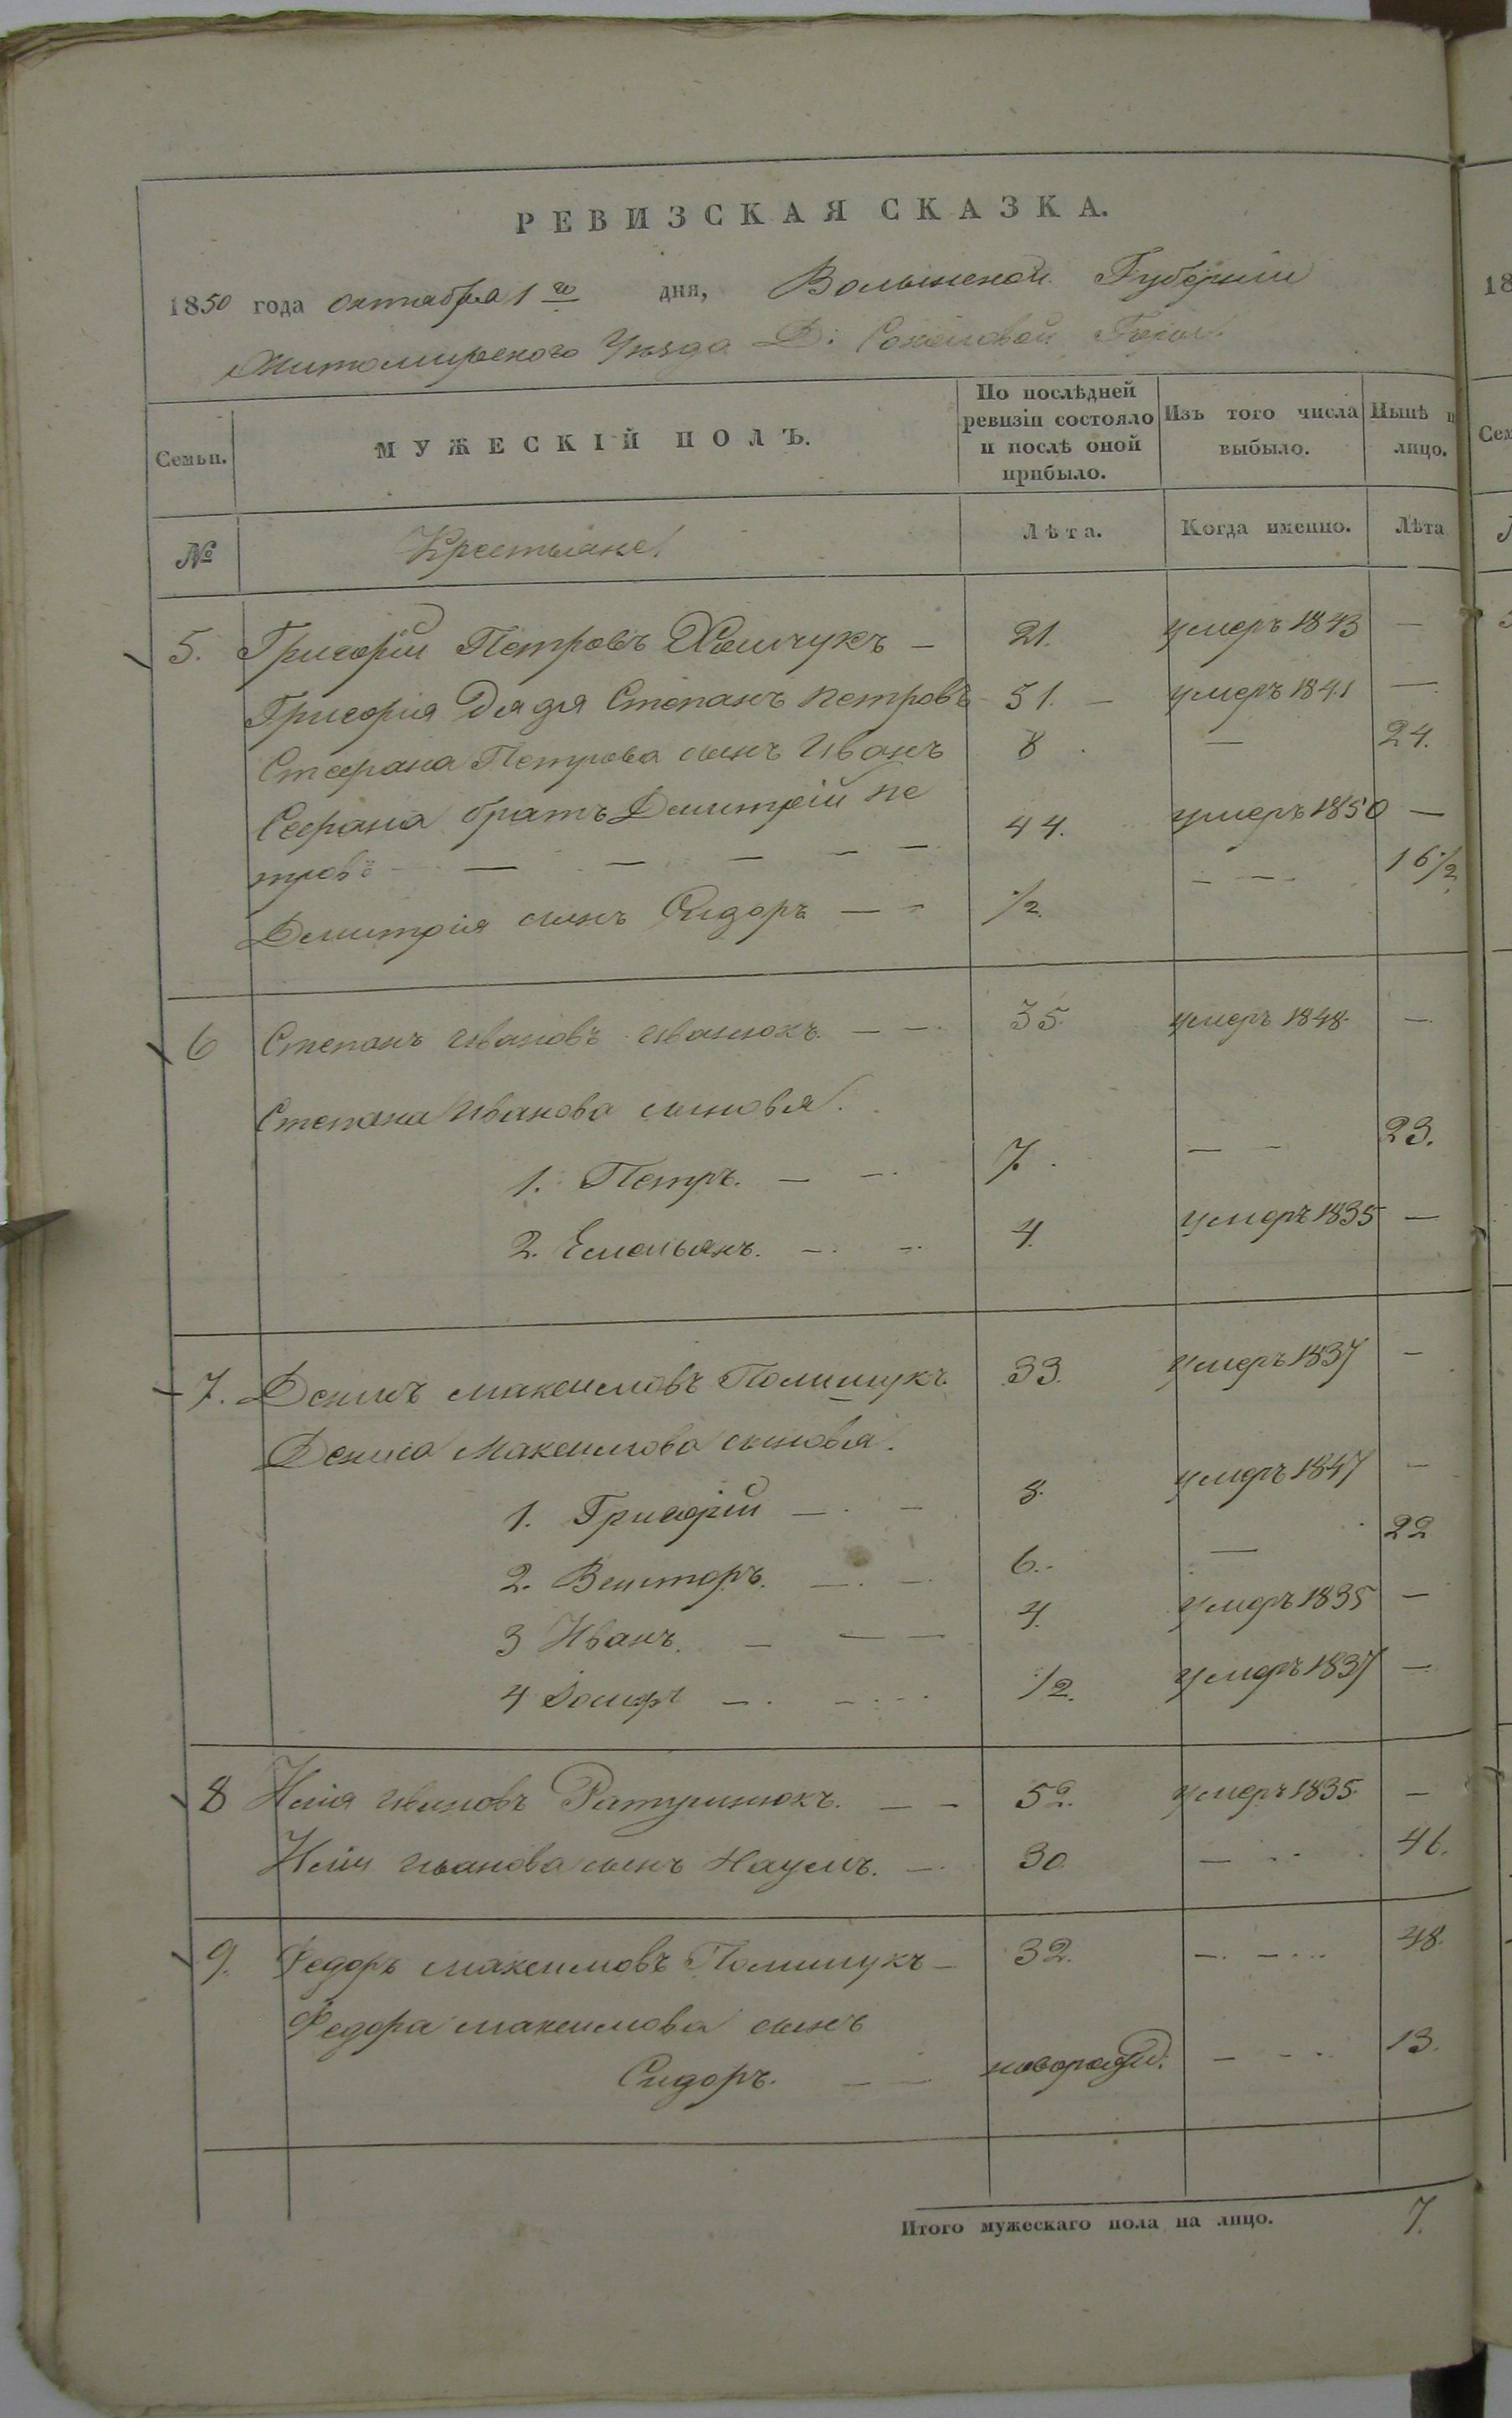 РЕВИЗСКАЯ СКАЗКА.
1850 года октября 1го дня, Волынской Губернии
Житомирского Уезда Д: Соколовой Горы.
Семьи. МУЖЕСКІЙ ПОЛЪ. По послѣдней ревизіи состояло и послѣ оной прибыло. Изъ того числа выбыло. Нынѣ н лицо.
№ Крестьяне. Лѣта. Когда именно. Лѣта
5. Григорій Петровъ Хомчукъ — 21. умеръ 1843 —
Григорія Дядя Степанъ Петровъ 51. — умеръ 1841 —
Степана Петрова сынъ Иванъ 8. — 24.
братъ Дмитрій Пе
тровъ — — — — — 44. умеръ 1850 —
Дмитрія сынъ Сидоръ — — 1/2. — — — 16 1/2
6 Степанъ Ивановъ Иванюкъ. — — 35. умеръ 1848. —
Степана Иванова сыновья.
1. Петръ. — — 7. — — 23.
2. Емельянъ. — — 4. умеръ 1835 —
7. Денисъ Максимовъ Полищукъ 33. умеръ 1837 —
Дениса Максимова сыновья.
1. Григорій — — 8. умеръ 1847 —
2. — — 6. — 22
3 Иванъ. — — — 4. умеръ 1835 —
4 — — 1/2. умеръ 1837 —
8 Илія Ивановъ Ратушнюкъ. — — 52. умеръ 1835. —
Иліи Иванова сынъ Наумъ. — 30. — 46.
9. Федоръ Максимовъ Полищукъ — 32. — — 48.
Федора Максимова сынъ
Сидоръ. — — новорожд: — — 13.
Итого мужескаго пола на лицо. 7.
18
Сем